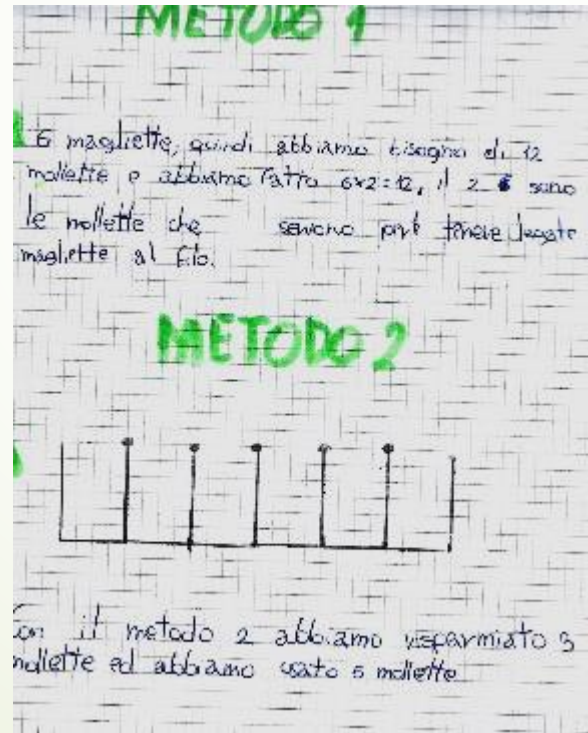 METODO 1
6 magliette, quindi abbiamo bisogno di 12
mollette e abbiamo fatto 6x2=12, il 2 sono
le mollette che servono per tenere legate
magliette al filo.
METODO 2
Con il metodo 2 abbiamo risparmiato 3
mollette ed abbiamo usato 5 mollette